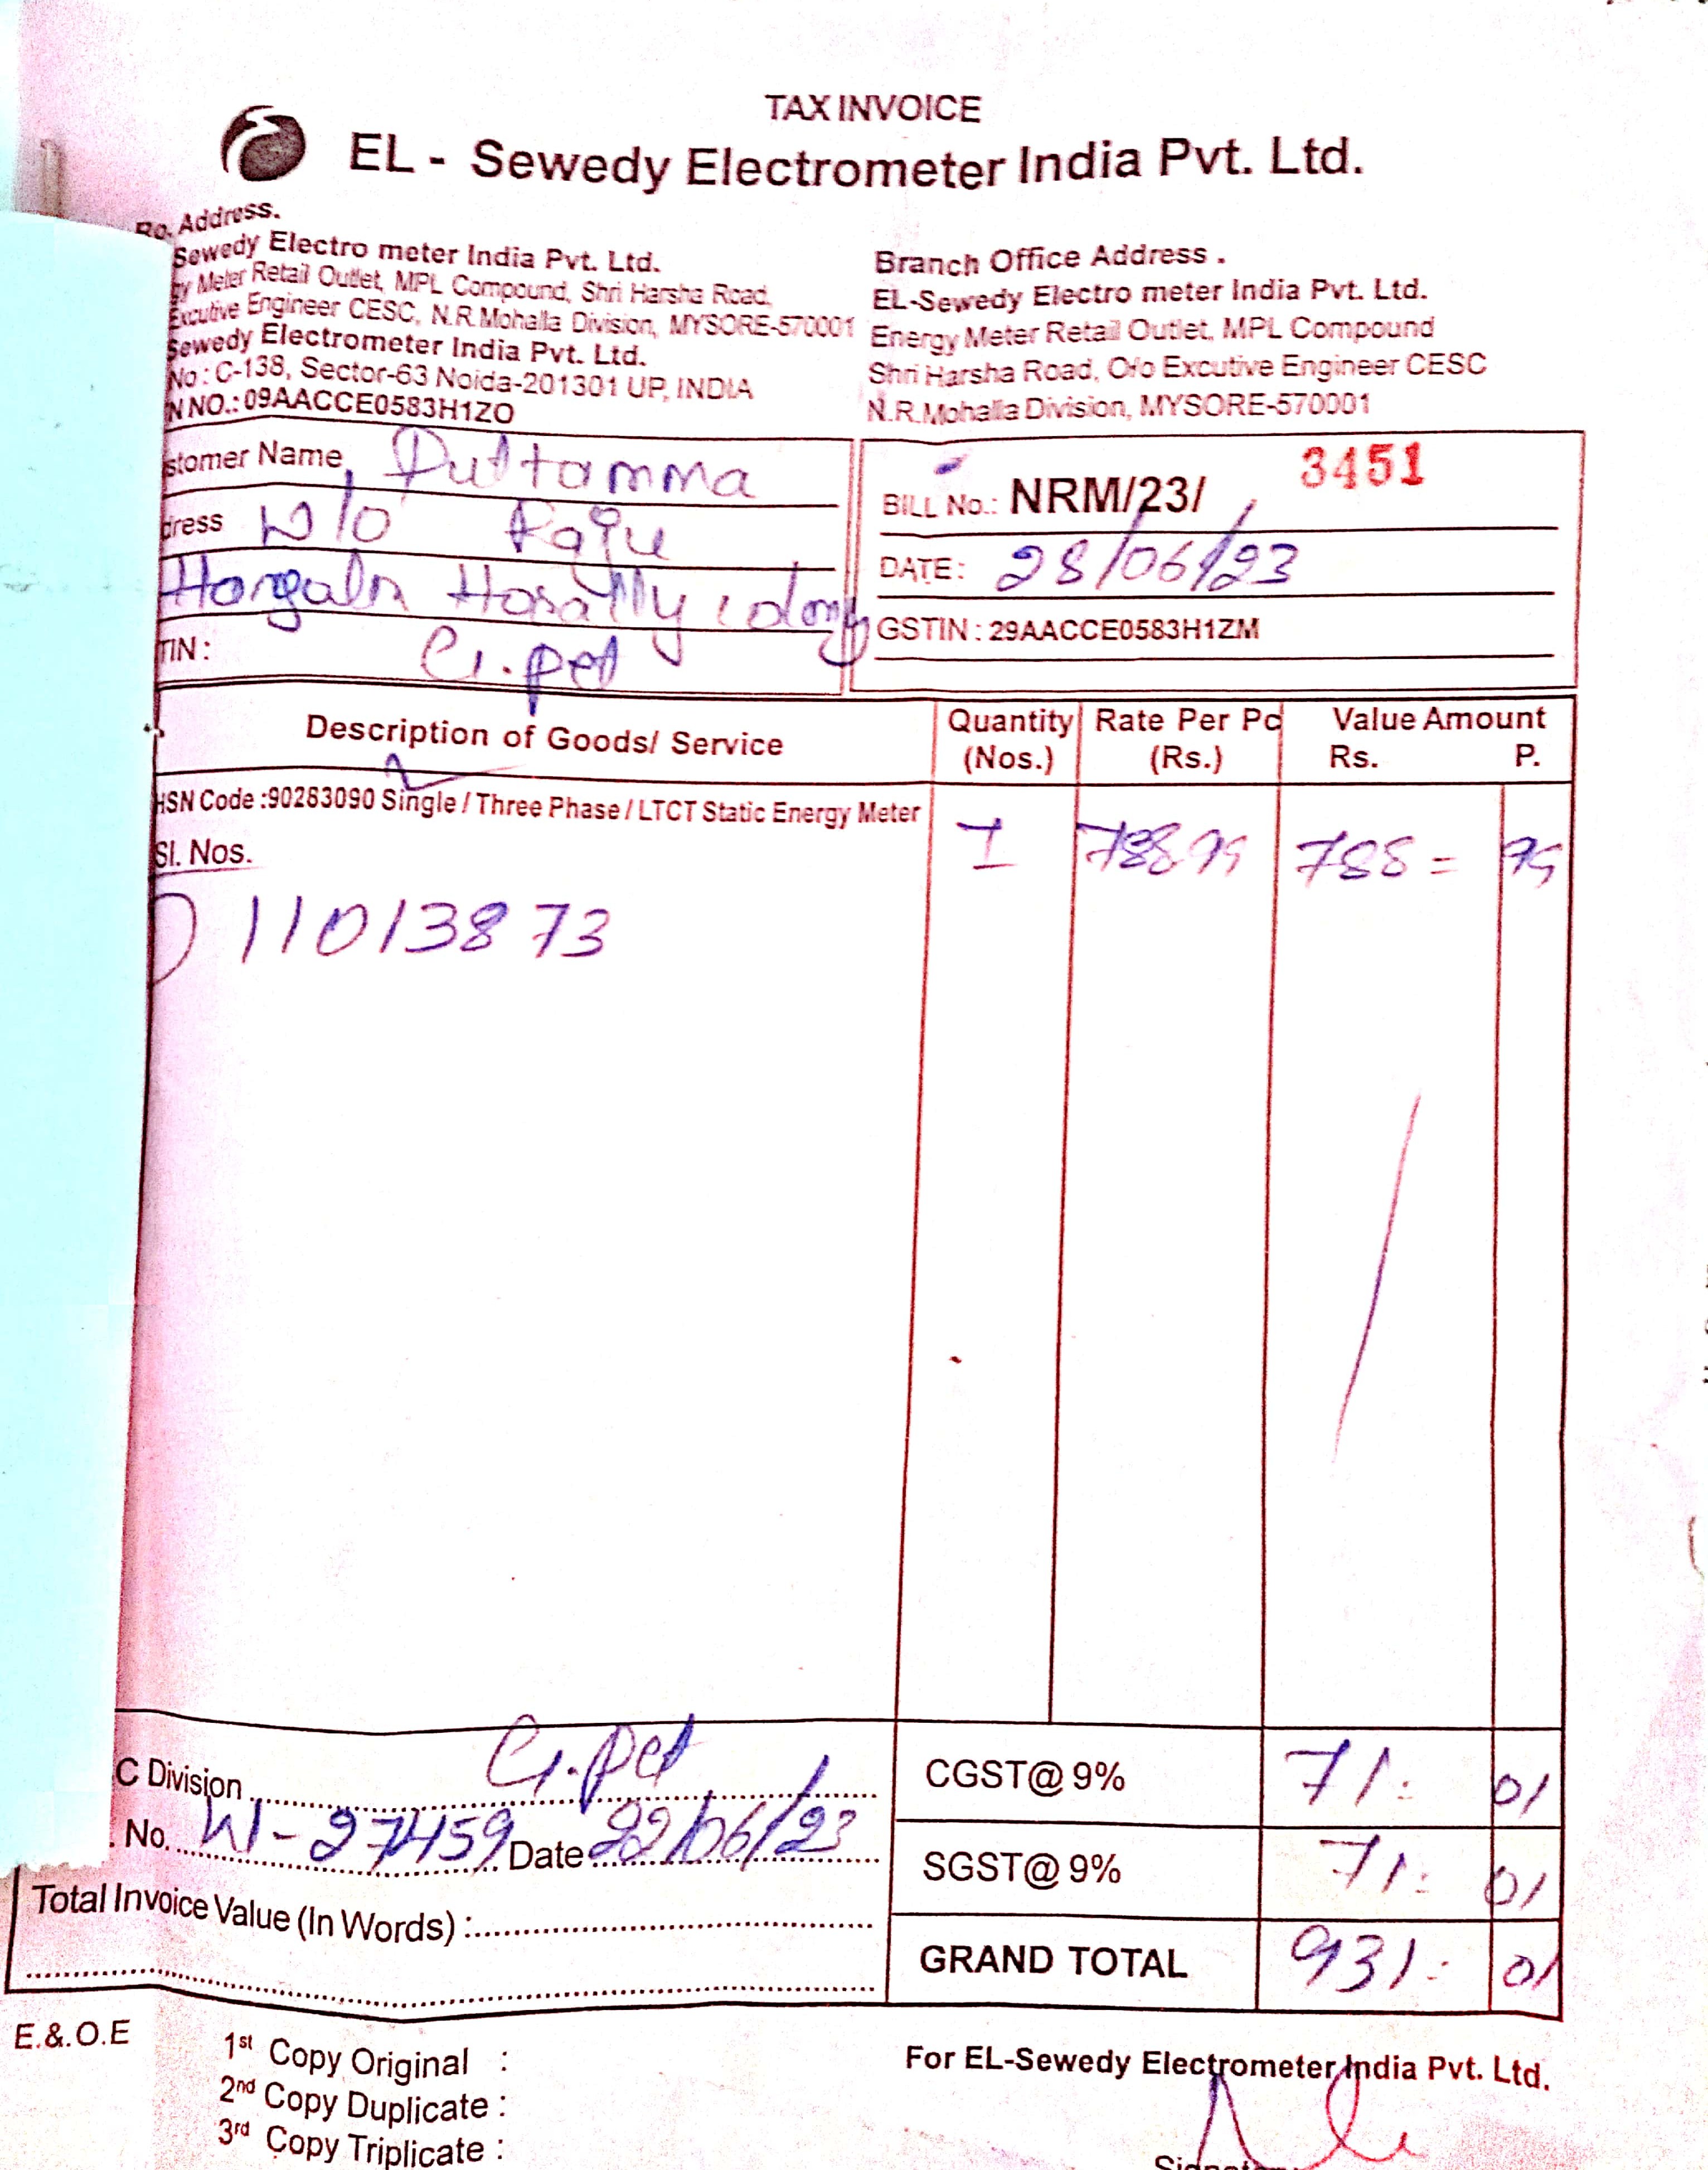 TAX INVOICE
EL - Sewedy Electrometer India Pvt. Ltd.
Ro. Address.
Sewedy Electro meter India Pvt. Ltd.
gy Meter Retail Outlet, MPL Compound, Shri Harsha Road,
Excutive Engineer CESC, N.R.Mohalla Division, MYSORE-570001
Sewedy Electrometer India Pvt. Ltd.
No : C-138, Sector-63 Noida-201301 UP, INDIA
N NO.: 09AACCE0583H1ZO
Branch Office Address .
EL-Sewedy Electro meter India Pvt. Ltd.
Energy Meter Retail Outlet, MPL Compound
Shri Harsha Road, O/o Excutive Engineer CESC
N.R.Mohalla Division, MYSORE-570001
stomer Name Puttamma
dress W/o Raju
Hosally colony
TIN : G.pet
BILL No.: NRM/23/ 3451
DATE : 28/06/23
GSTIN : 29AACCE0583H1ZM
Description of Goods/ Service Quantity (Nos.) Rate Per Pc (Rs.) Value Amount Rs. P.
HSN Code :90283090 Single / Three Phase / LTCT Static Energy Meter
Sl. Nos. 1 788 95 788 = 95
11013873
C Division G.pet
. No. W-27459 Date 22/06/23
Total Invoice Value (In Words) :
CGST@ 9% 71 : 01
SGST@ 9% 71 : 01
GRAND TOTAL 931 : 01
E.&.O.E
1st Copy Original :
2nd Copy Duplicate :
3rd Copy Triplicate :
For EL-Sewedy Electrometer India Pvt. Ltd.